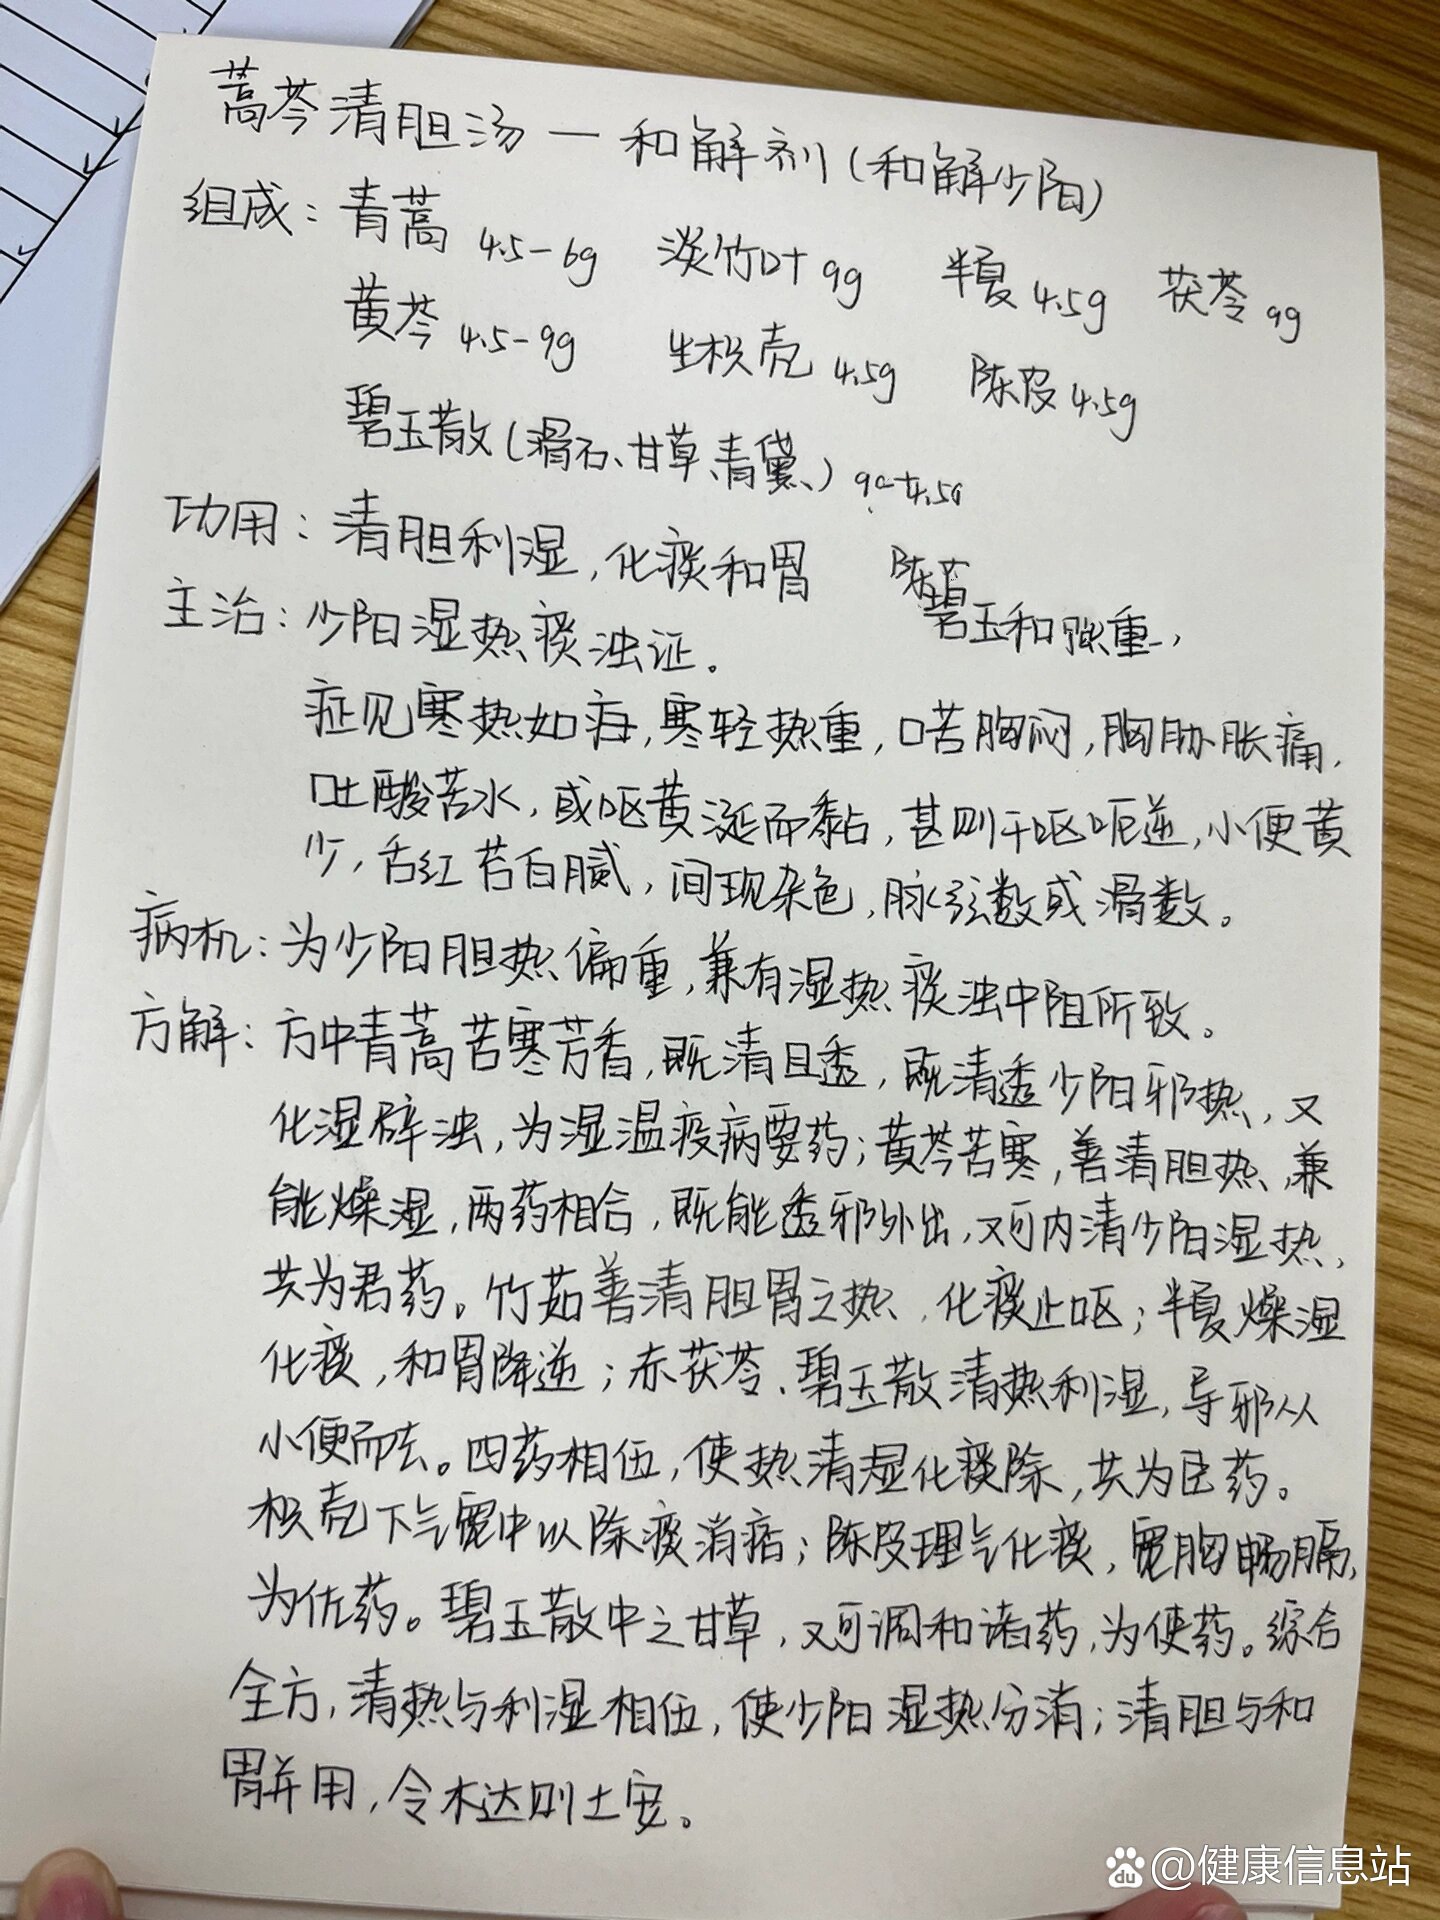 蒿芩清胆汤—和解剂(和解少阳)
组成:青蒿4.5-6g 淡竹叶9g 半夏4.5g 茯苓9g
黄芩4.5-9g 生枳壳4.5g 陈皮4.5g
碧玉散(滑石、甘草、青黛、)
功用:清胆利湿,化痰和胃
碧玉和
主治:少阳湿热痰浊证。
症见寒热如疟,寒轻热重,口苦胸闷,胸胁胀痛,
吐酸苦水,或呕黄涎而黏,甚则干呕呃逆,小便黄
少,舌红苔白腻,间现杂色,脉弦数或滑数。
病机:为少阳胆热偏重,兼有湿热痰浊中阻所致。
方解:方中青蒿苦寒芳香,既清且透,既清透少阳邪热,又
化湿辟浊,为湿温疫病要药;黄芩苦寒,善清胆热,兼
能燥湿,两药相合,既能透邪外出,又可内清少阳湿热,
共为君药。竹茹善清胆胃之热,化痰止呕;半夏燥湿
化痰,和胃降逆;赤茯苓、碧玉散清热利湿,导邪从
小便而去。四药相伍,使热清湿化痰除,共为臣药。
枳壳下气宽中以除痰消痞;陈皮理气化痰,宽胸畅膈,
为佐药。碧玉散中之甘草,又可调和诸药,为使药。综合
全方,清热与利湿相伍,使少阳湿热分消;清胆与和
胃并用,令木达则土安。
@健康信息站